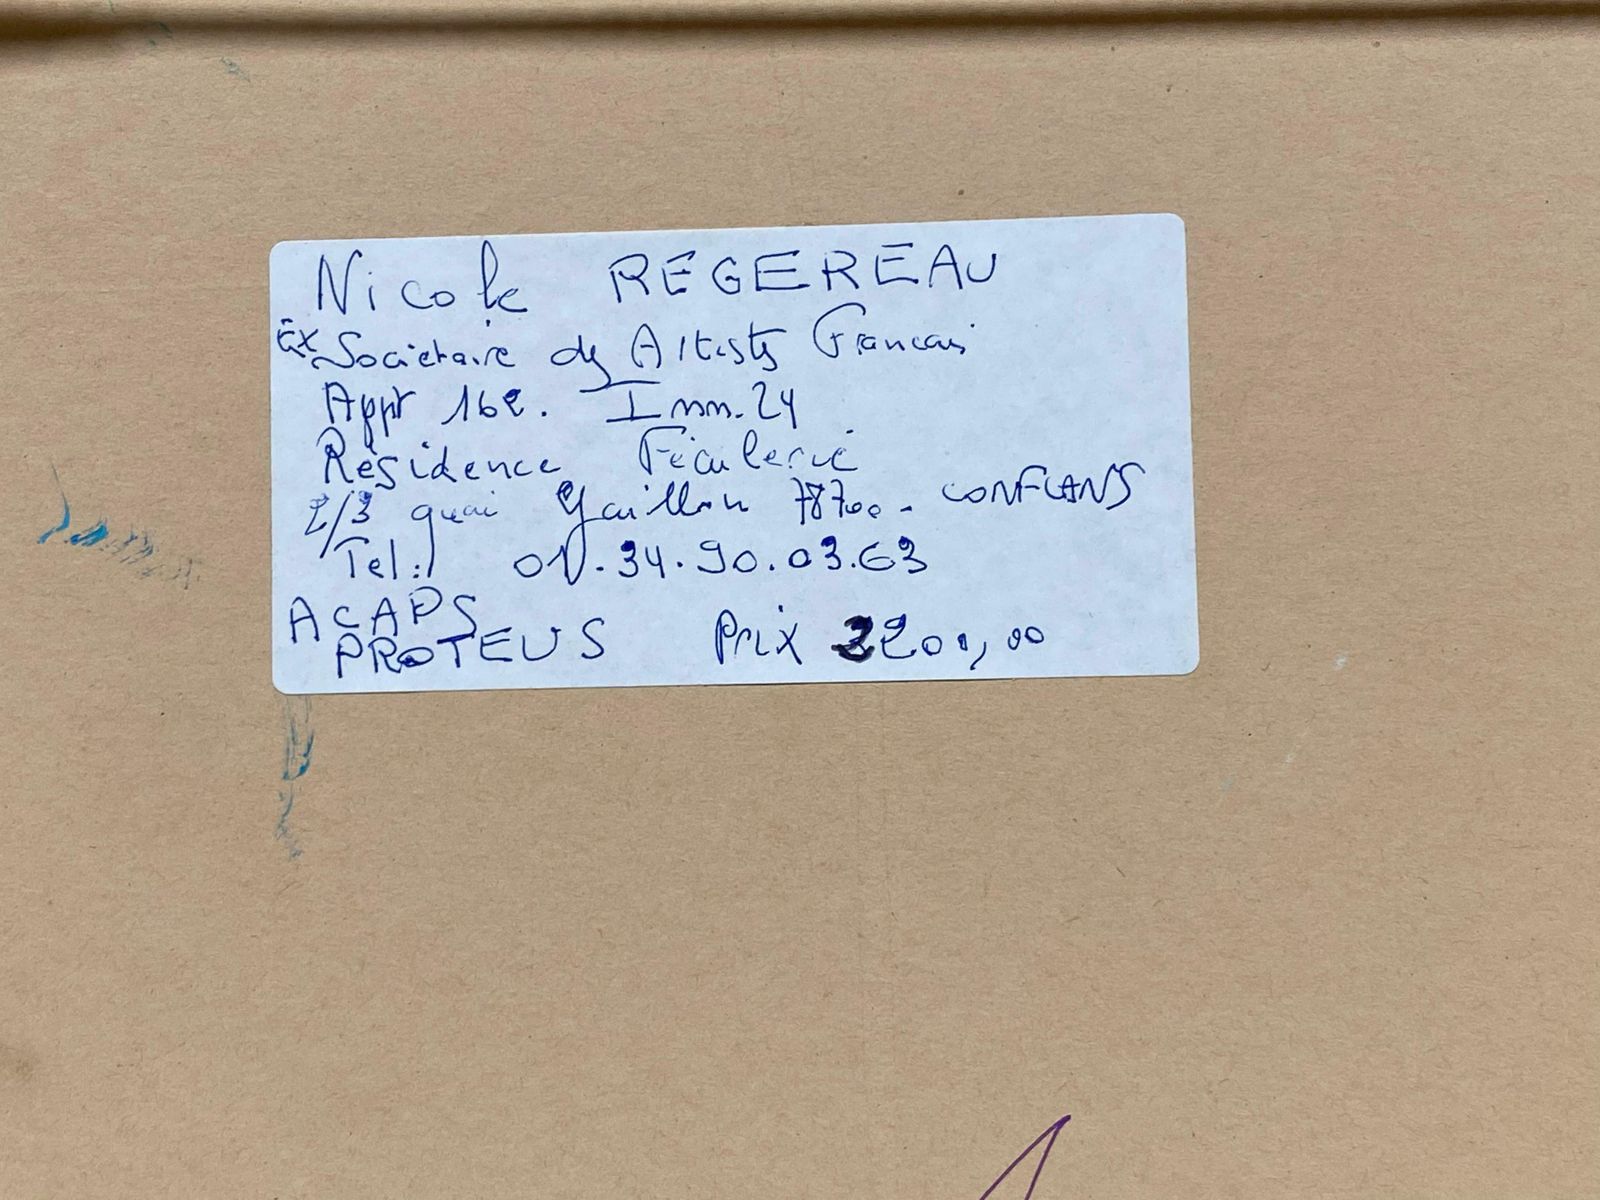 Nicole REGEREAU
Ex Sociétaire des Artistes Francais
Appt 162. Imm. 24
Résidence Féculerie
2/3 quai Gaillon 78700. CONFLANS
Tel: 01.34.90.03.63
ACAPS
PROTEUS Prix 2200,00